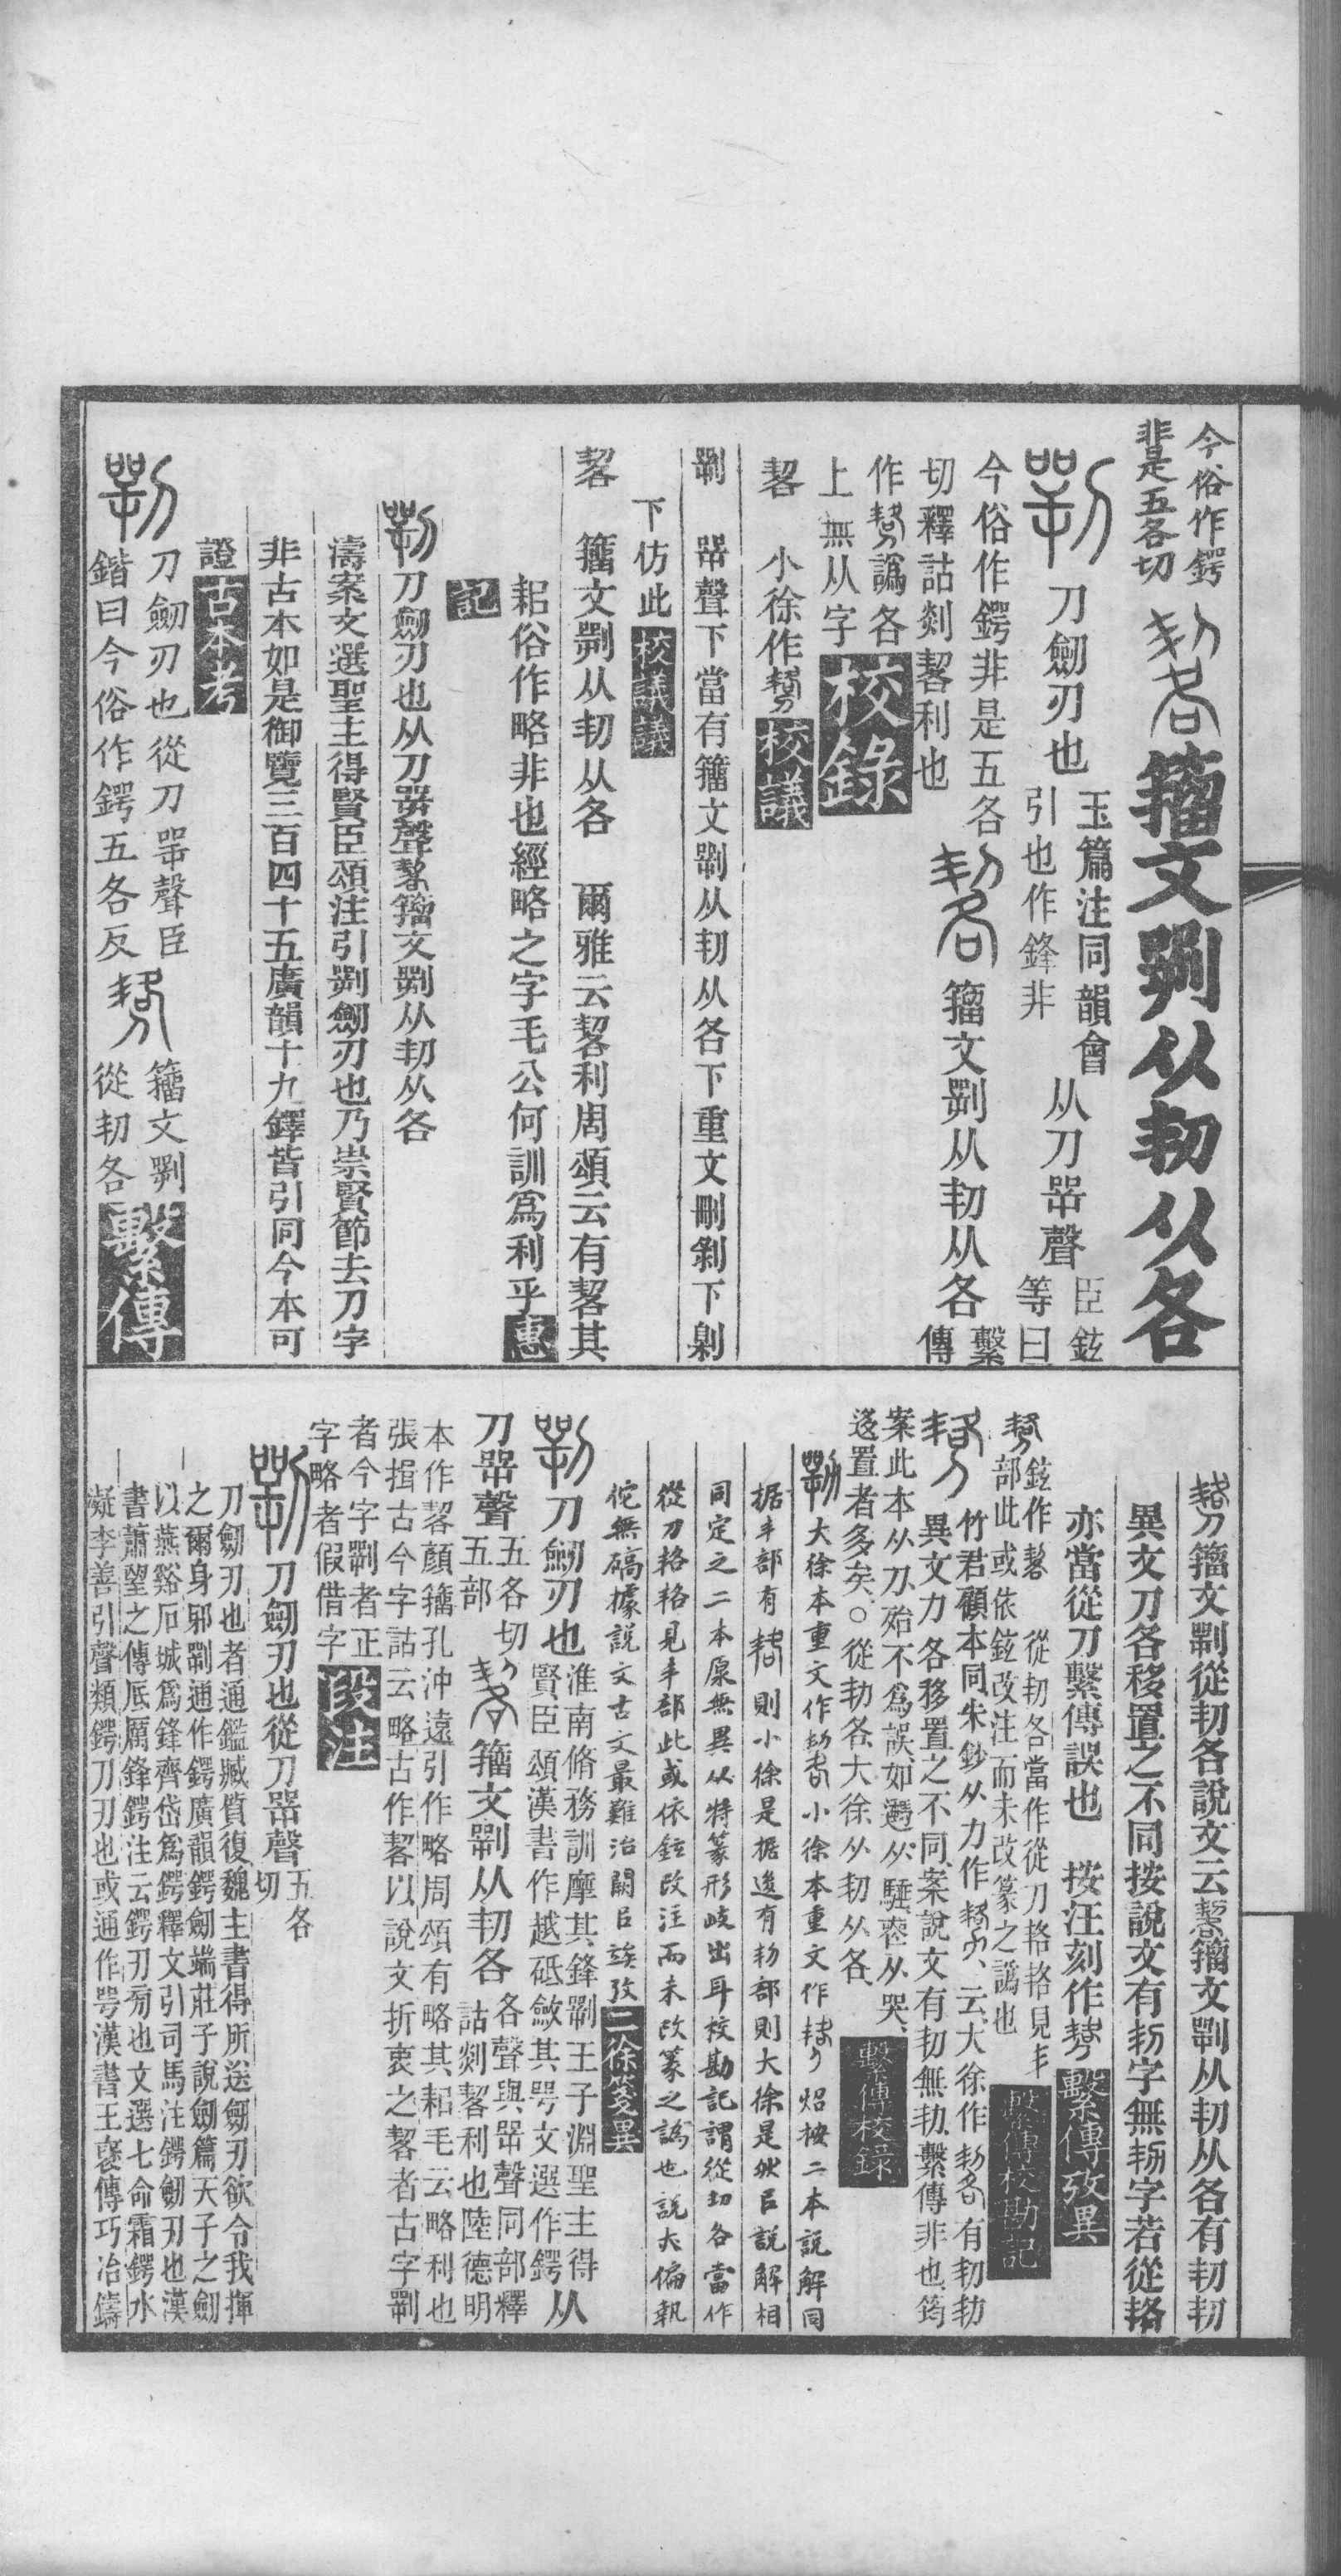 今俗作鍔
非是五各切
籒文㓵从㓞从各
刀劒刃也
玉篇注同韻會
引也作鋒非
从刀咢聲
臣鉉
等曰
今俗作鍔非是五各
切釋詁剡䂮利也
籒文㓵从㓞从各
繫
傳
作 譌各
上無从字
校錄
䂮 小徐作
校議
㓵 咢聲下當有籒文㓵从㓞从各下重文刪剝下剝
下仿此
校議議
䂮 籒文㓵从㓞从各 爾雅云䂮利周頌云有䂮其
耜俗作略非也經略之字毛公何訓爲利乎
惠
記
刀劒刃也从刀咢聲 籒文㓵从㓞从各
濤案文選聖主得賢臣頌注引㓵劒刃也乃崇賢節去刀字
非古本如是御覽三百四十五廣韻十九鐸皆引同今本可
證
古本考
刀劒刃也從刀咢聲臣
鍇曰今俗作鍔五各反
籒文㓵
從㓞各
繫傳
籒文㓵從㓞各說文云 籒文㓵从㓞从各有㓞㓞
異文刀各移置之不同按說文有㓞字無 字若從挌
亦當從刀繫傳誤也 按汪刻作
繫傳攷異
鉉作 從㓞各當作從刀挌挌見丯
部此或依鉉改注而未改篆之譌也
繫傳校勘記
竹君顧本同朱鈔从力作 云大徐作 有㓞
異文力各移置之不同案說文有㓞無 繫傳非也筠
案此本从刀殆不爲誤如遷从 从哭
迻置者多矣○從㓞各大徐从㓞从各
繫傳校錄
大徐本重文作 小徐本重文作 炤按二本說解同
据丯部有 則小徐是据後有㓞部則大徐是然吕說解相
同定之二本原無異从特篆形岐出耳校勘記謂從㓞各當作
從刀挌挌見丯部此或依鉉改注而未改篆之譌也說太偏執
佗無碻據說文古文最難治闕吕俟攷
二徐箋異
刀劒刃也
淮南脩務訓摩其鋒㓵王子淵聖主得
賢臣頌漢書作越砥斂其咢文選作鍔
从
刀咢聲
五各切
五部
籒文㓵从㓞各
各聲與咢聲同部釋
詁剡䂮利也陸德明
本作䂮顏籒孔沖遠引作略周頌有略其耜毛云略利也
張揖古今字詁云略古作䂮以說文折衷之䂮者古字㓵
者今字㓵者正
字略者假借字
段注
刀劒刃也從刀咢聲
五各
切
刀劒刃也者通鑑臧質復魏主書得所送劒刃欲令我揮
之爾身邪㓵通作鍔廣韻鍔劒端莊子說劒篇天子之劒
以燕谿石城爲鋒齊岱爲鍔釋文引司馬注鍔劒刃也漢
書蕭望之傳厎厲鋒鍔注云鍔刃旁也文選七命霜鍔水
凝李善引聲類鍔刀刃也或通作咢漢書王襃傳巧冶鑄